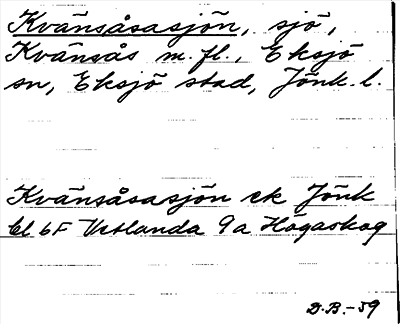 Kvänsåsasjön, sjö,
Kvänsås m.fl., Eksjö
sn, Eksjö stad, Jönk. l.
Kvänsåsasjön ek Jönk
bl 6F Vetlanda 9a Högaskog
D.B.-59